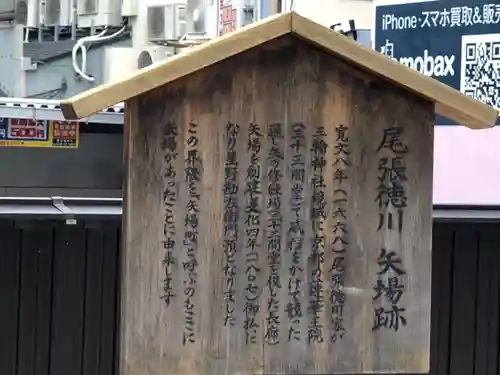 尾張徳川 矢場跡
寛文八年(一六六八)尾張徳川家が
三輪神社境域に京都の蓮華王院
(三十三間堂)で武名をかけて競った
通し矢の修練場(三十三間堂を模した長廊)
矢場を創建 文化四年(一八〇七)御払に
なり星野勘左衛門預となりました
この界隈を「矢場町」と呼ぶのもここに
矢場があったことに由来します
iPhone・スマホ買取&販売
mobax
買取